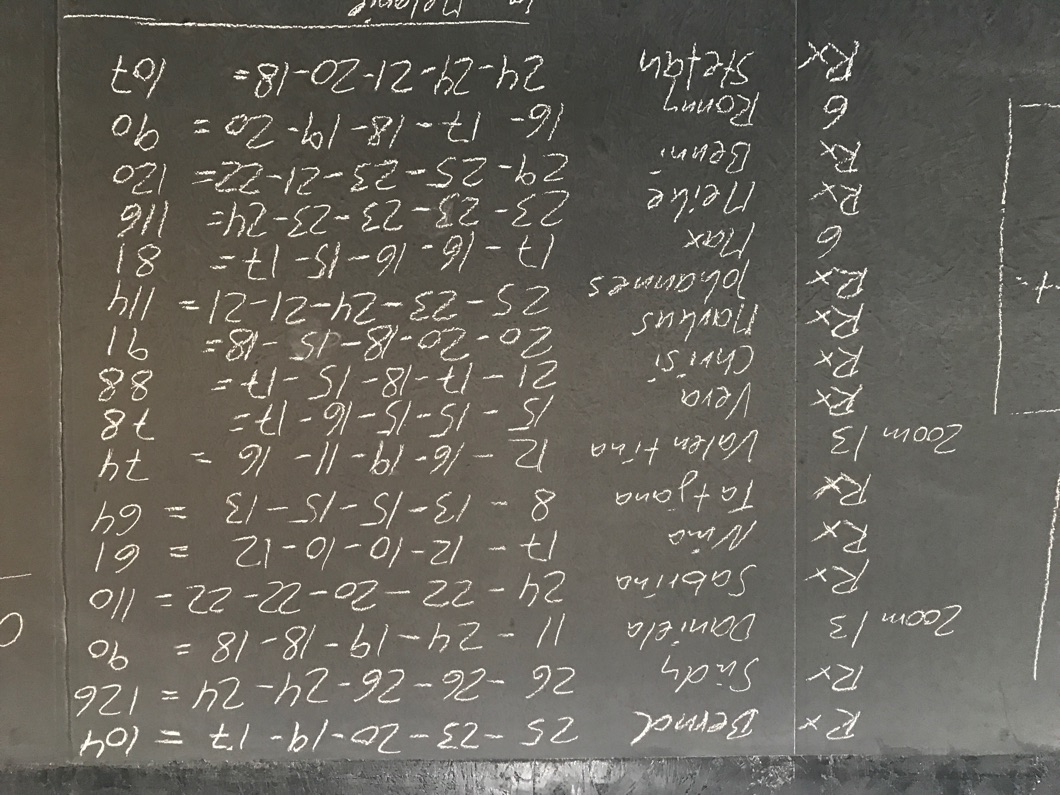 Rx Bernd 25-23-20-19-17 = 104
Rx Sindy 26-26-26-24-24 = 126
200m 13 Daniela 11-24-19-18-18 = 90
Rx Sabrina 24-22-20-22-22 = 110
Rx Nina 17-12-10-10-12 = 61
Rx Tatjana 8-13-15-15-13 = 64
200m 13 Valentina 12-16-19-11-16 = 74
Rx Vera 15-15-15-16-17 = 78
Rx Chrisi 21-17-18-15-17 = 88
Rx Markus 20-20-18-15-18 = 91
Rx Johannes 25-23-24-21-21 = 114
6 Max 17-16-16-15-17 = 81
Rx Meike 23-23-23-23-24 = 116
Rx Benni 29-25-23-21-22 = 120
6 Ronny 16-17-18-19-20 = 90
Rx Stefan 24-24-21-20-18 = 107
Melanie